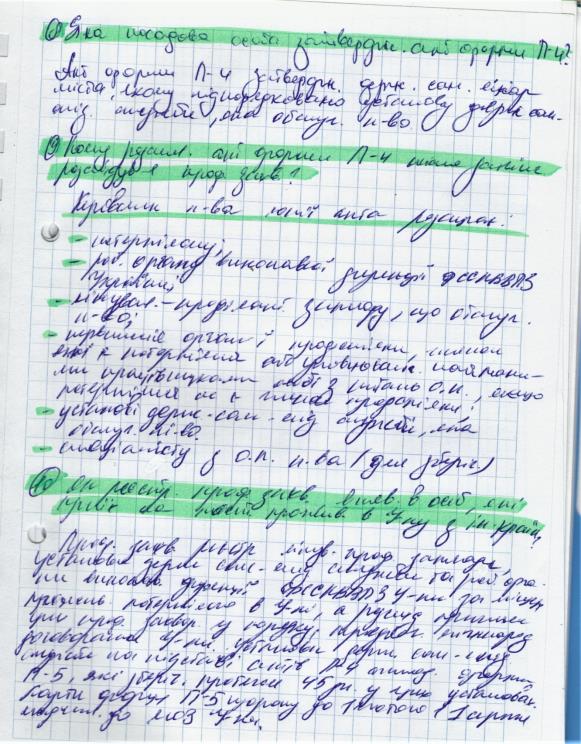 8) Яка посадова особа затвердж. акт форми П-4?
Акт форми П-4 затвердж. держ. сан. лікар
міста якому підпорядковано установу держ. сан-
епід. служби, яка обслуг. п-во.
9) розсил. акт форми П-4
розслідув-я проф. захв?
Керівник п-ва копії акта надсилає:
- потерпілому;
- роб. органу виконавчої дирекції ФССНВВПЗ
України;
- лікувал.-профілакт. закладу, що обслуг.
п-во;
- первинній органі-ї профспілки, членом
якої є потерпілий, або уповноваж. наймани-
ми працівниками особі з питань о.п., якщо
потерпілий не є членом профспілки;
- установі держ. сан.-епід. служби, яка
обслуг. п-во.
- спеціалісту з о.п. п-ва (для зберіг.)
10) Як реєстр. проф. захв. в осіб, які
на в У-ну з ін. країн?
Проф. захв. проф. заклади,
установи держ. сан.-епід. служби та роб. орга-
ни виконав. дирекції ФССНВВПЗ У-ни за місцем
прожив. потерпілого в У-ні, а
проф. захвор. у порядку, міжнарод.
договорами У-ни. Установи держ. сан.-епід.
служби на підставі актів П-4 форми
П-5, які зберіг. протягом 45 р. у цих установах.
Карти форми П-5 щороку до 1 лютого і 1 серпня
до МОЗ У-ни.